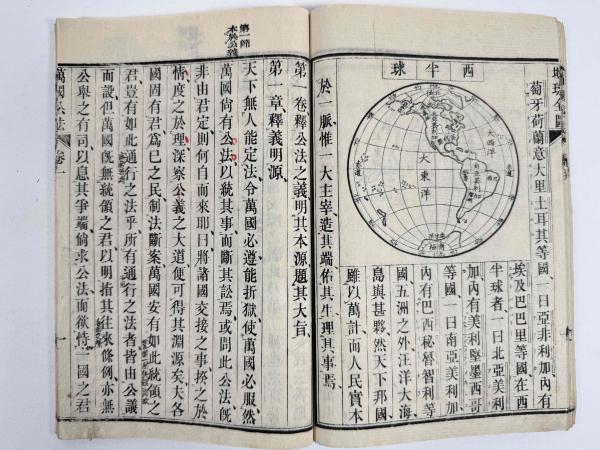 西半球
大西洋
大東洋
葡牙荷蘭意大里土耳其等
國一曰亞非利加內有
埃及巴巴里等國在西
半球者一曰北亞美利
加內有美利堅墨西哥
等國一曰南亞美利加
內有巴西秘魯智利等
國五洲之外汪洋大海
島與甚夥然天下邦國
雖以萬計而人民實本
於一脈惟一大主宰造其端佑其生理其事焉
第一卷釋公法之義明其本源題其大旨
第一章釋義明源
第一節
本於公義
天下無人能定法令萬國必遵能折獄使萬國必服然
萬國尙有公法以統其事而斷其訟焉或問此公法旣
非由君定則何自而來耶曰將諸國交接之事揆之於
情度之於理深察公義之大道便可得其淵源矣夫各
國固有君爲已之民制法斷案萬國安有如此統領之
君豈有如此通行之法乎所有通行之法者皆由公議
而設但萬國旣無統領之君以明指其往來條例亦無
公舉之有司以息其爭端倘求公法而欲恃一國之君
萬國公法 卷一